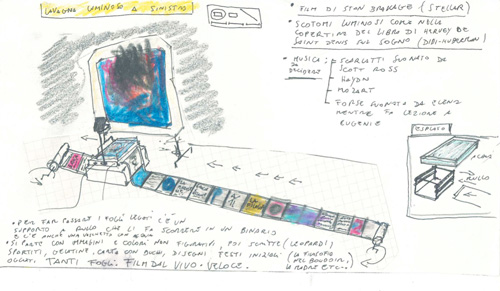 LAVAGNA LUMINOSA A SINISTRA
• FILM DI STAN BRAKHAGE (STELLAR)
• SCOTOMI LUMINOSI COME NELLA
COPERTINA DEL LIBRO DI HERVEY DE
SAINT DENIS SUL SOGNO (DIDI-HUBERMAN)
• MUSICA
DA
SCARLATTI SUONATO DA
SCOTT ROSS
HAYDN
MOZART
FORSE SUONATO DA ELENA
MENTRE FA LEZIONE A
EUGENIE
ESPLOSO
RULLO
• PER FAR PASSARE I FOGLI LEGATI C'È UN
SUPPORTO A RULLO CHE LI FA SCORRERE IN UN BINARIO
E C'È ANCHE UNA VASCHETTA CON ACQUA
• SI PARTE CON IMMAGINI E COLORI NON FIGURATIVI, POI SCRITTE (LEOPARDI)
SPARTITI, GELATINE, CARTA CON BUCHI, DISEGNI TESTI INIZIALI (LA FILOSOFIA
NEL BOUDOIR,
LA MADRE ETC..)
OGGETTI TANTI FOGLI. FILM DAL VIVO. VELOCE.